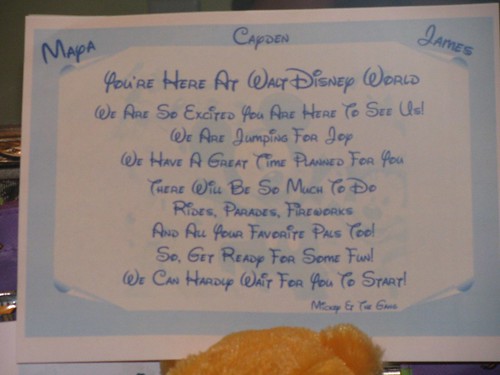 Maya Cayden James
You're Here At Walt Disney World
We Are So Excited You Are Here To See Us!
We Are Jumping For Joy
We Have A Great Time Planned For You
There Will Be So Much To Do
Rides, Parades, Fireworks
And All Your Favorite Pals Too!
So, Get Ready For Some Fun!
We Can Hardly Wait For You To Start!
Mickey & The Gang